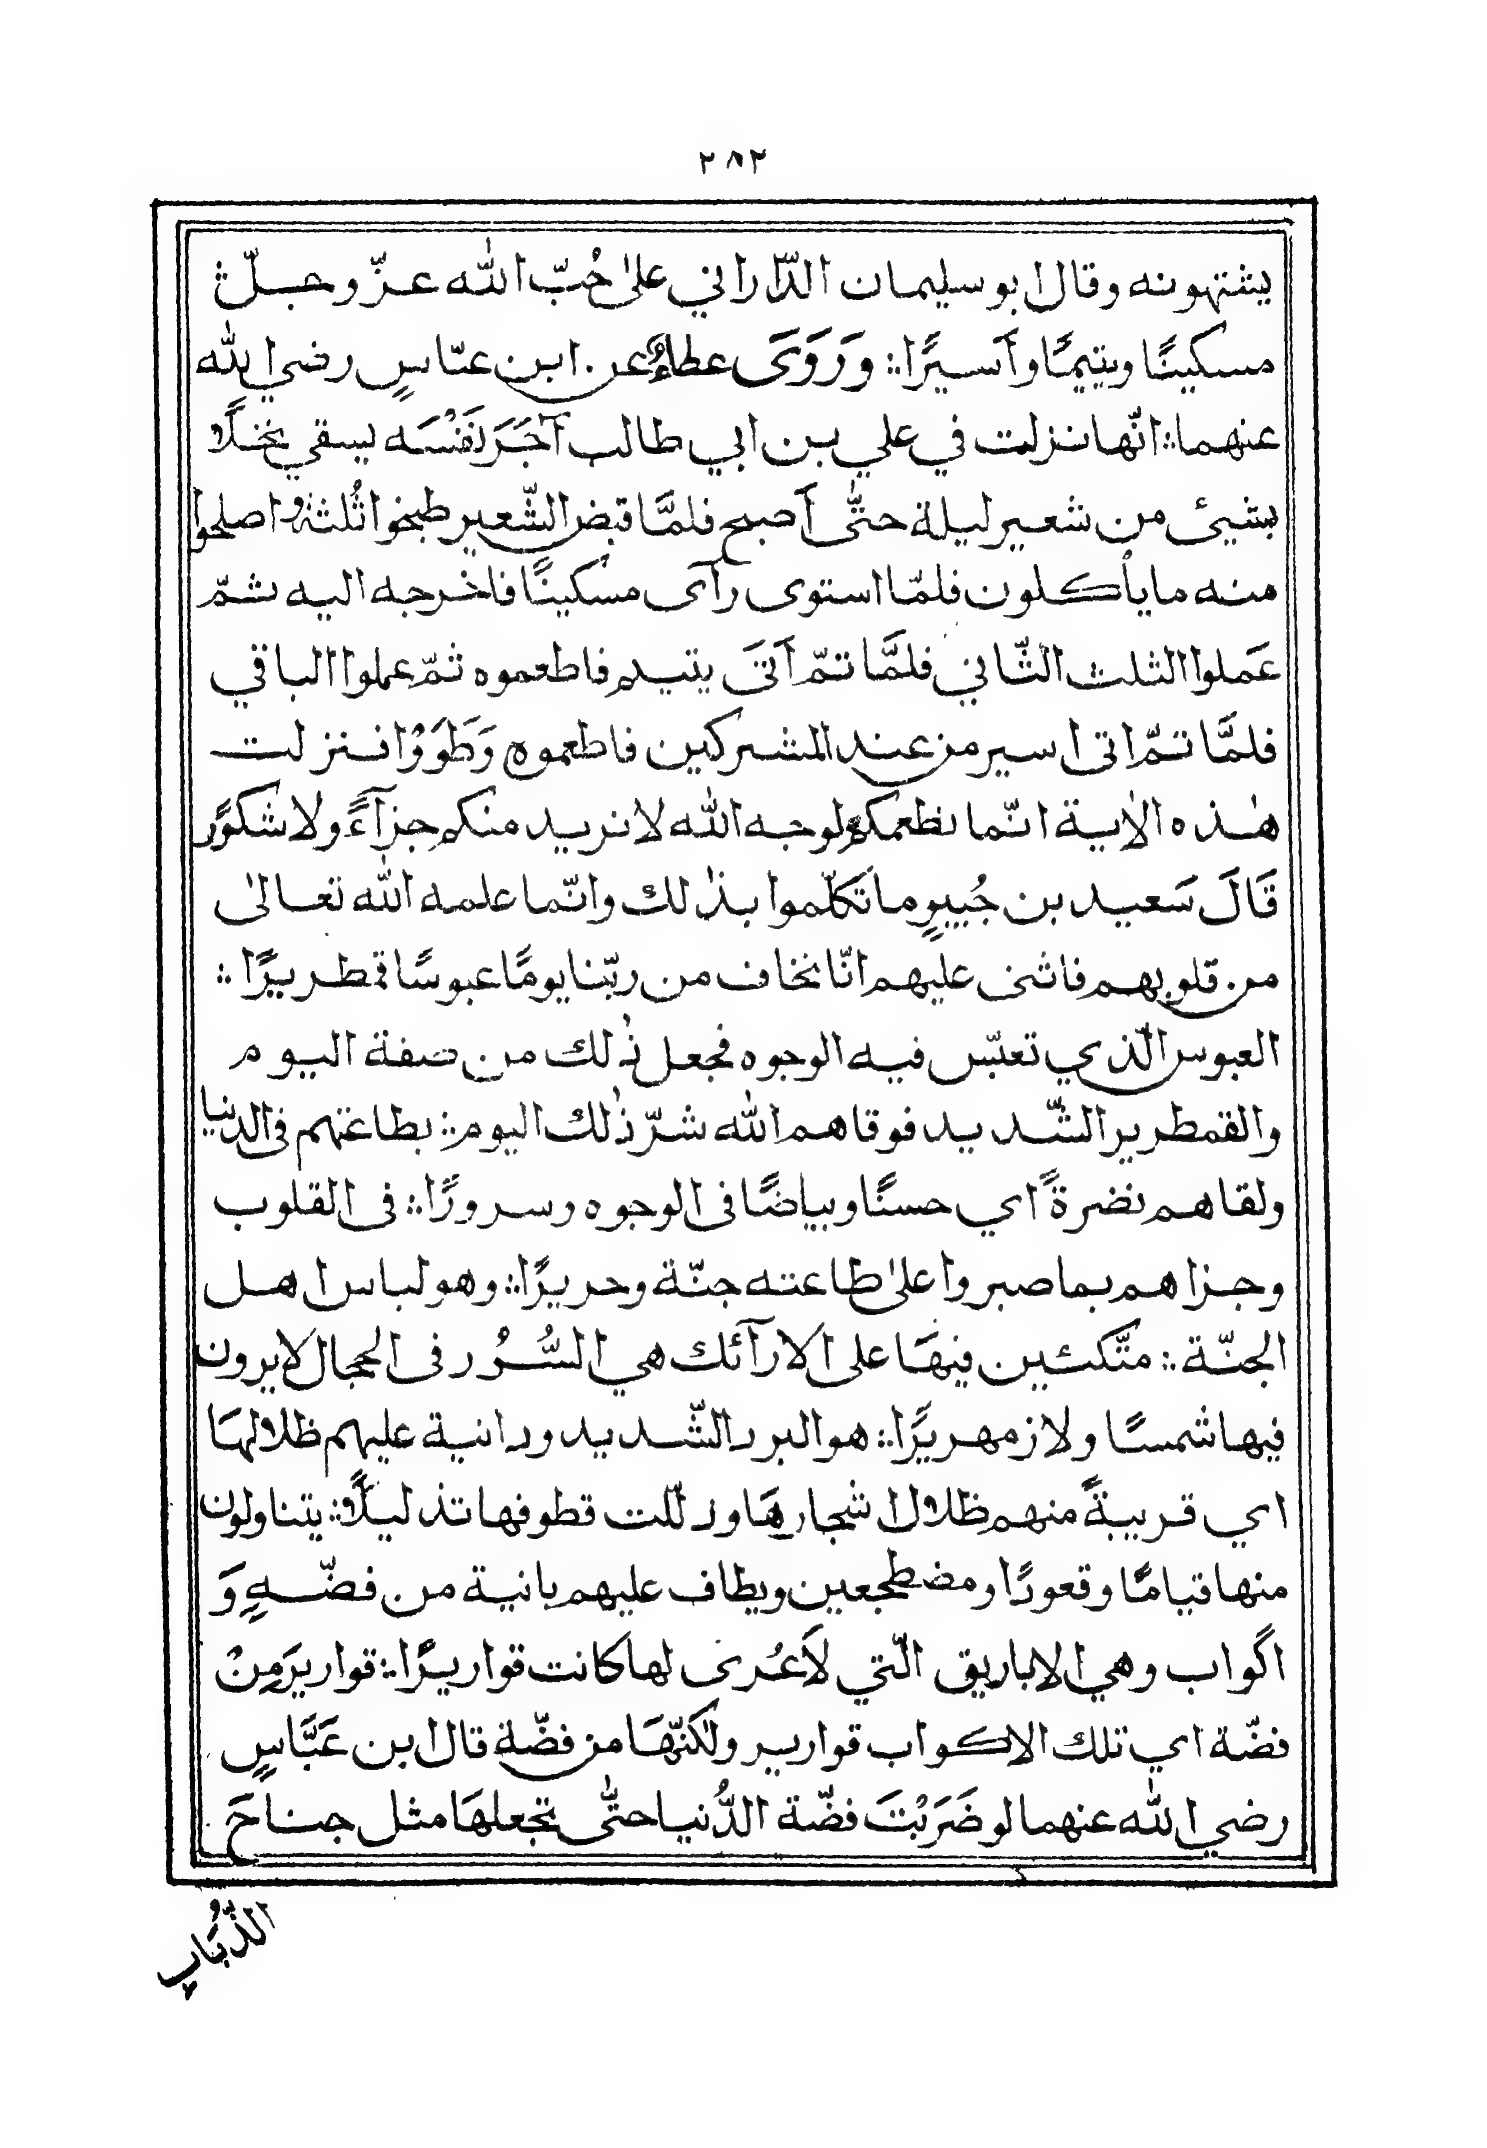 ٢٨٢
يشتهونه وقال ابو سليمان الدّاراني علىٰ حُبّ اللّٰه عزّ وجلّ ؞
مسكينًا ويتيمًا وأسيرًا ؞ وَرَوَىَ عطاءٌ عن ابن عبّاسٍ رضي اللّٰه
عنهما ؞ انّها نزلت في علي بن ابي طالب آجَرَ نَفْسَه يسقي نخلًا
بشيئ من شعير ليلة حتّٰى أصبح فلمَّا قبض الشّعير طبخوا ثُلثهُ واصلحوا
منه ما يأكلون فلمّا استوى رآى مسكينًا فاخرجه اليه ثمّ
عَملوا الثلث الثّاني فلمَّا تمّ أتىَ يتيم فاطعموه ثمّ عملوا الباقي
فلمَّا تمّ اتى اسير من عند المشركين فاطعموه وَطَوَوُا فنزلت
هٰذه الاٰية انّما نطعمكم لوجه اللّٰه لا نريد منكم جزآءً ولا شكورً
قَالَ سَعيد بن جُبيرٍ ما تكلّموا بذٰلك وانّما علمه اللّٰه تعالىٰ
من قلوبهم فاثنى عليهم انّا نخاف من ربّنا يومًا عبوسًا قمطريرًا ؞
العبوس الّذي تعبّس فيه الوجوه فجعل ذٰلك من صفة اليوم
والقمطرير الشّديد فوقاهم اللّٰه شرّ ذٰلك اليوم ؞ بطاعتهم فى الدنيا
ولقاهم نضرةً اي حسنًا وبياضًا فى الوجوه وسرورًا ؞ فى القلوب
وجزاهم بما صبروا علىٰ طاعته جنّة وحريرًا ؞ وهو لباس اهل
الجنّة ؞ متّكئين فيهَا على الارآئك هي السُّرُر فى الحجال لا يرون
فيها شمسًا ولا زمهريرًا ؞ هو البرد الشّديد ودانية عليهم ظلالهَا
اي قريبةً منهم ظلال اشجارهَا وذلّلت قطوفها تذليلًا ؞ يتناولون
منها قيامًا وقعودًا ومضطجعين ويطاف عليهم بانية من فضّةٍ وَ
اكواب وهي الاباريق الّتي لَا عُرى لها كانت قواريرًا ؞ قواريرَ مِنْ
فضّة اي تلك الاكواب قوارير ولٰكنّهَا من فضّة قال ابن عَبَّاسٍ
رضي اللّٰه عنهما لو ضَرَبْتَ فضّة الدُّنيا حتّٰى تجعلهَا مثل جناحَ
الذُّبَابِ